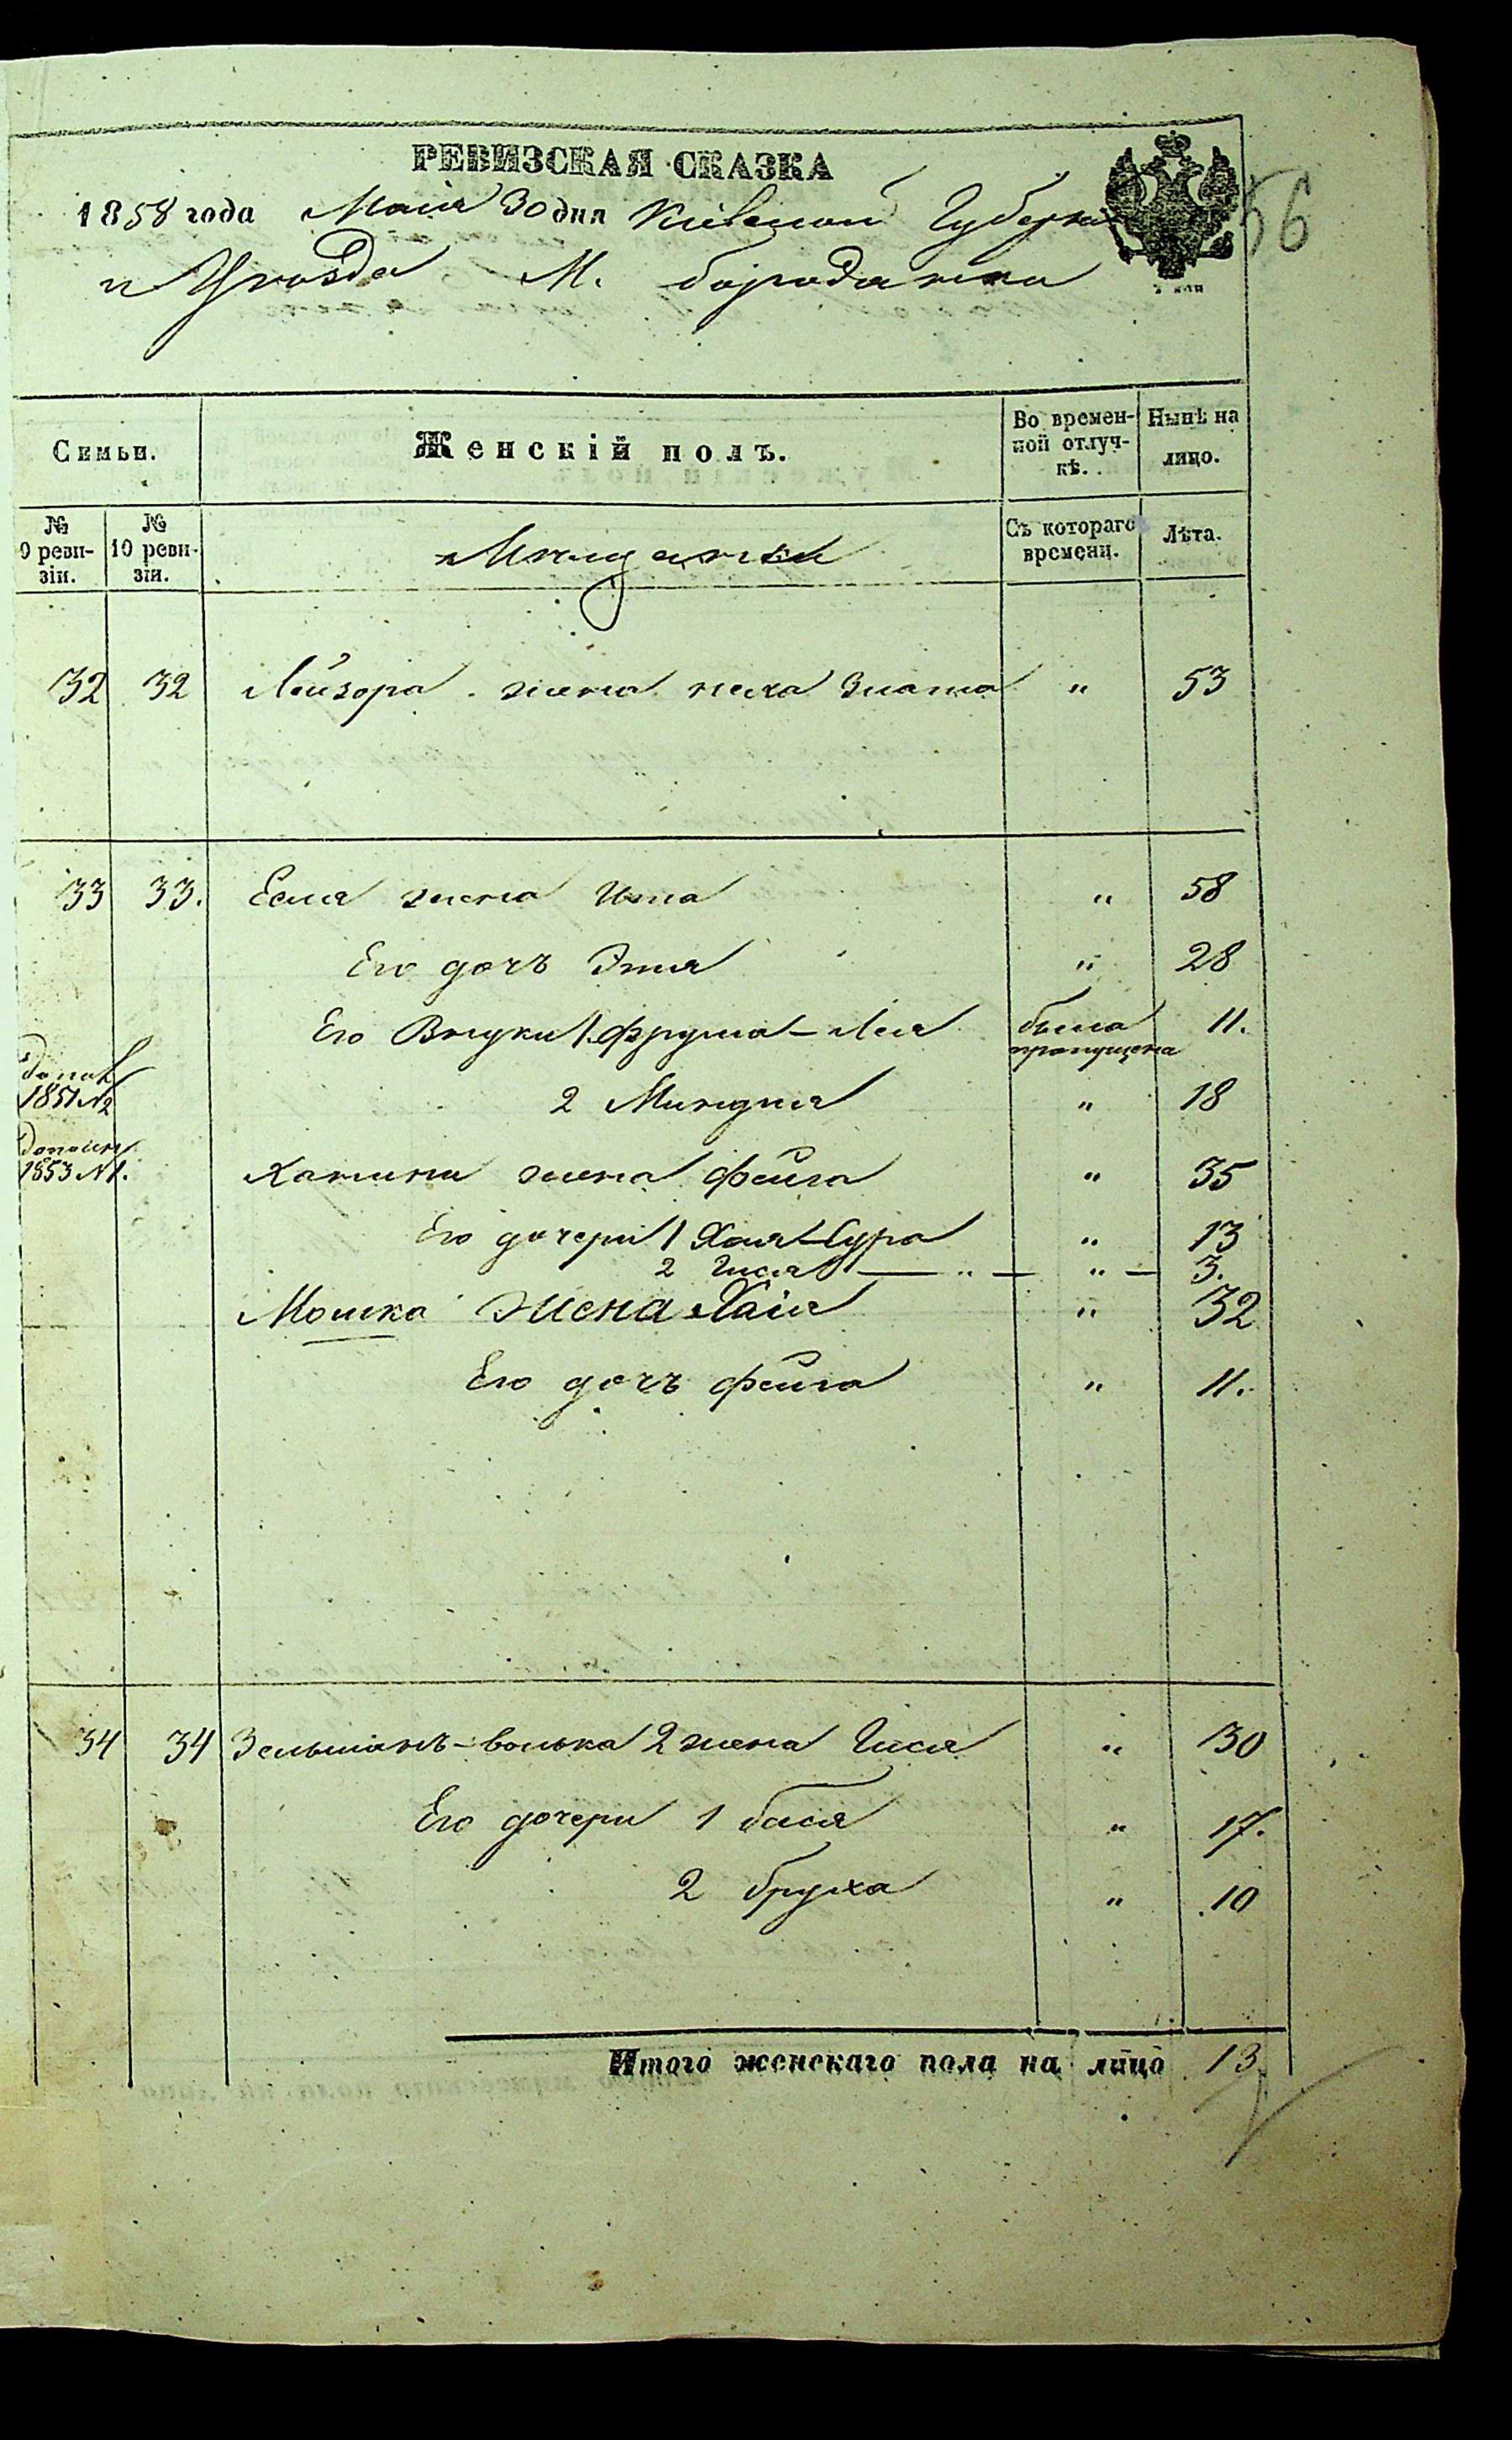 РЕВИЗСКАЯ СКАЗКА
1858 года Маія 30 дня Кіевской Губерніи
56
и Уѣзда М. Бородянка
Семьи.
Женскій полъ.
Во времен-
ной отлуч-
кѣ.
Нынѣ на
лицо.
№
9 реви-
зіи.
№
10 реви-
зіи.
Мѣщанки
Съ котораго
времени.
Лѣта.
32 32 Лейзора жена Злата " 53
33 33. Есля жена Ита " 58
Его дочь Этя " 28
Его Внуки 1. Фрума-Лея была пропущена 11.
Допол
1851 №2
2 Миндля " 18
Дополн
1853 №1.
жена Фейга " 35
Его дочери 1 Хая-Сура " 13
2 Гися " 3.
Мошка жена Хаія " 32
Его дочь Фейга " 11.
34 34 Зельманъ-Волька 2 жена Гися " 30
Его дочери 1 Бася " 17.
2 Бруха " 10
Итого женскаго пола на лицо 13